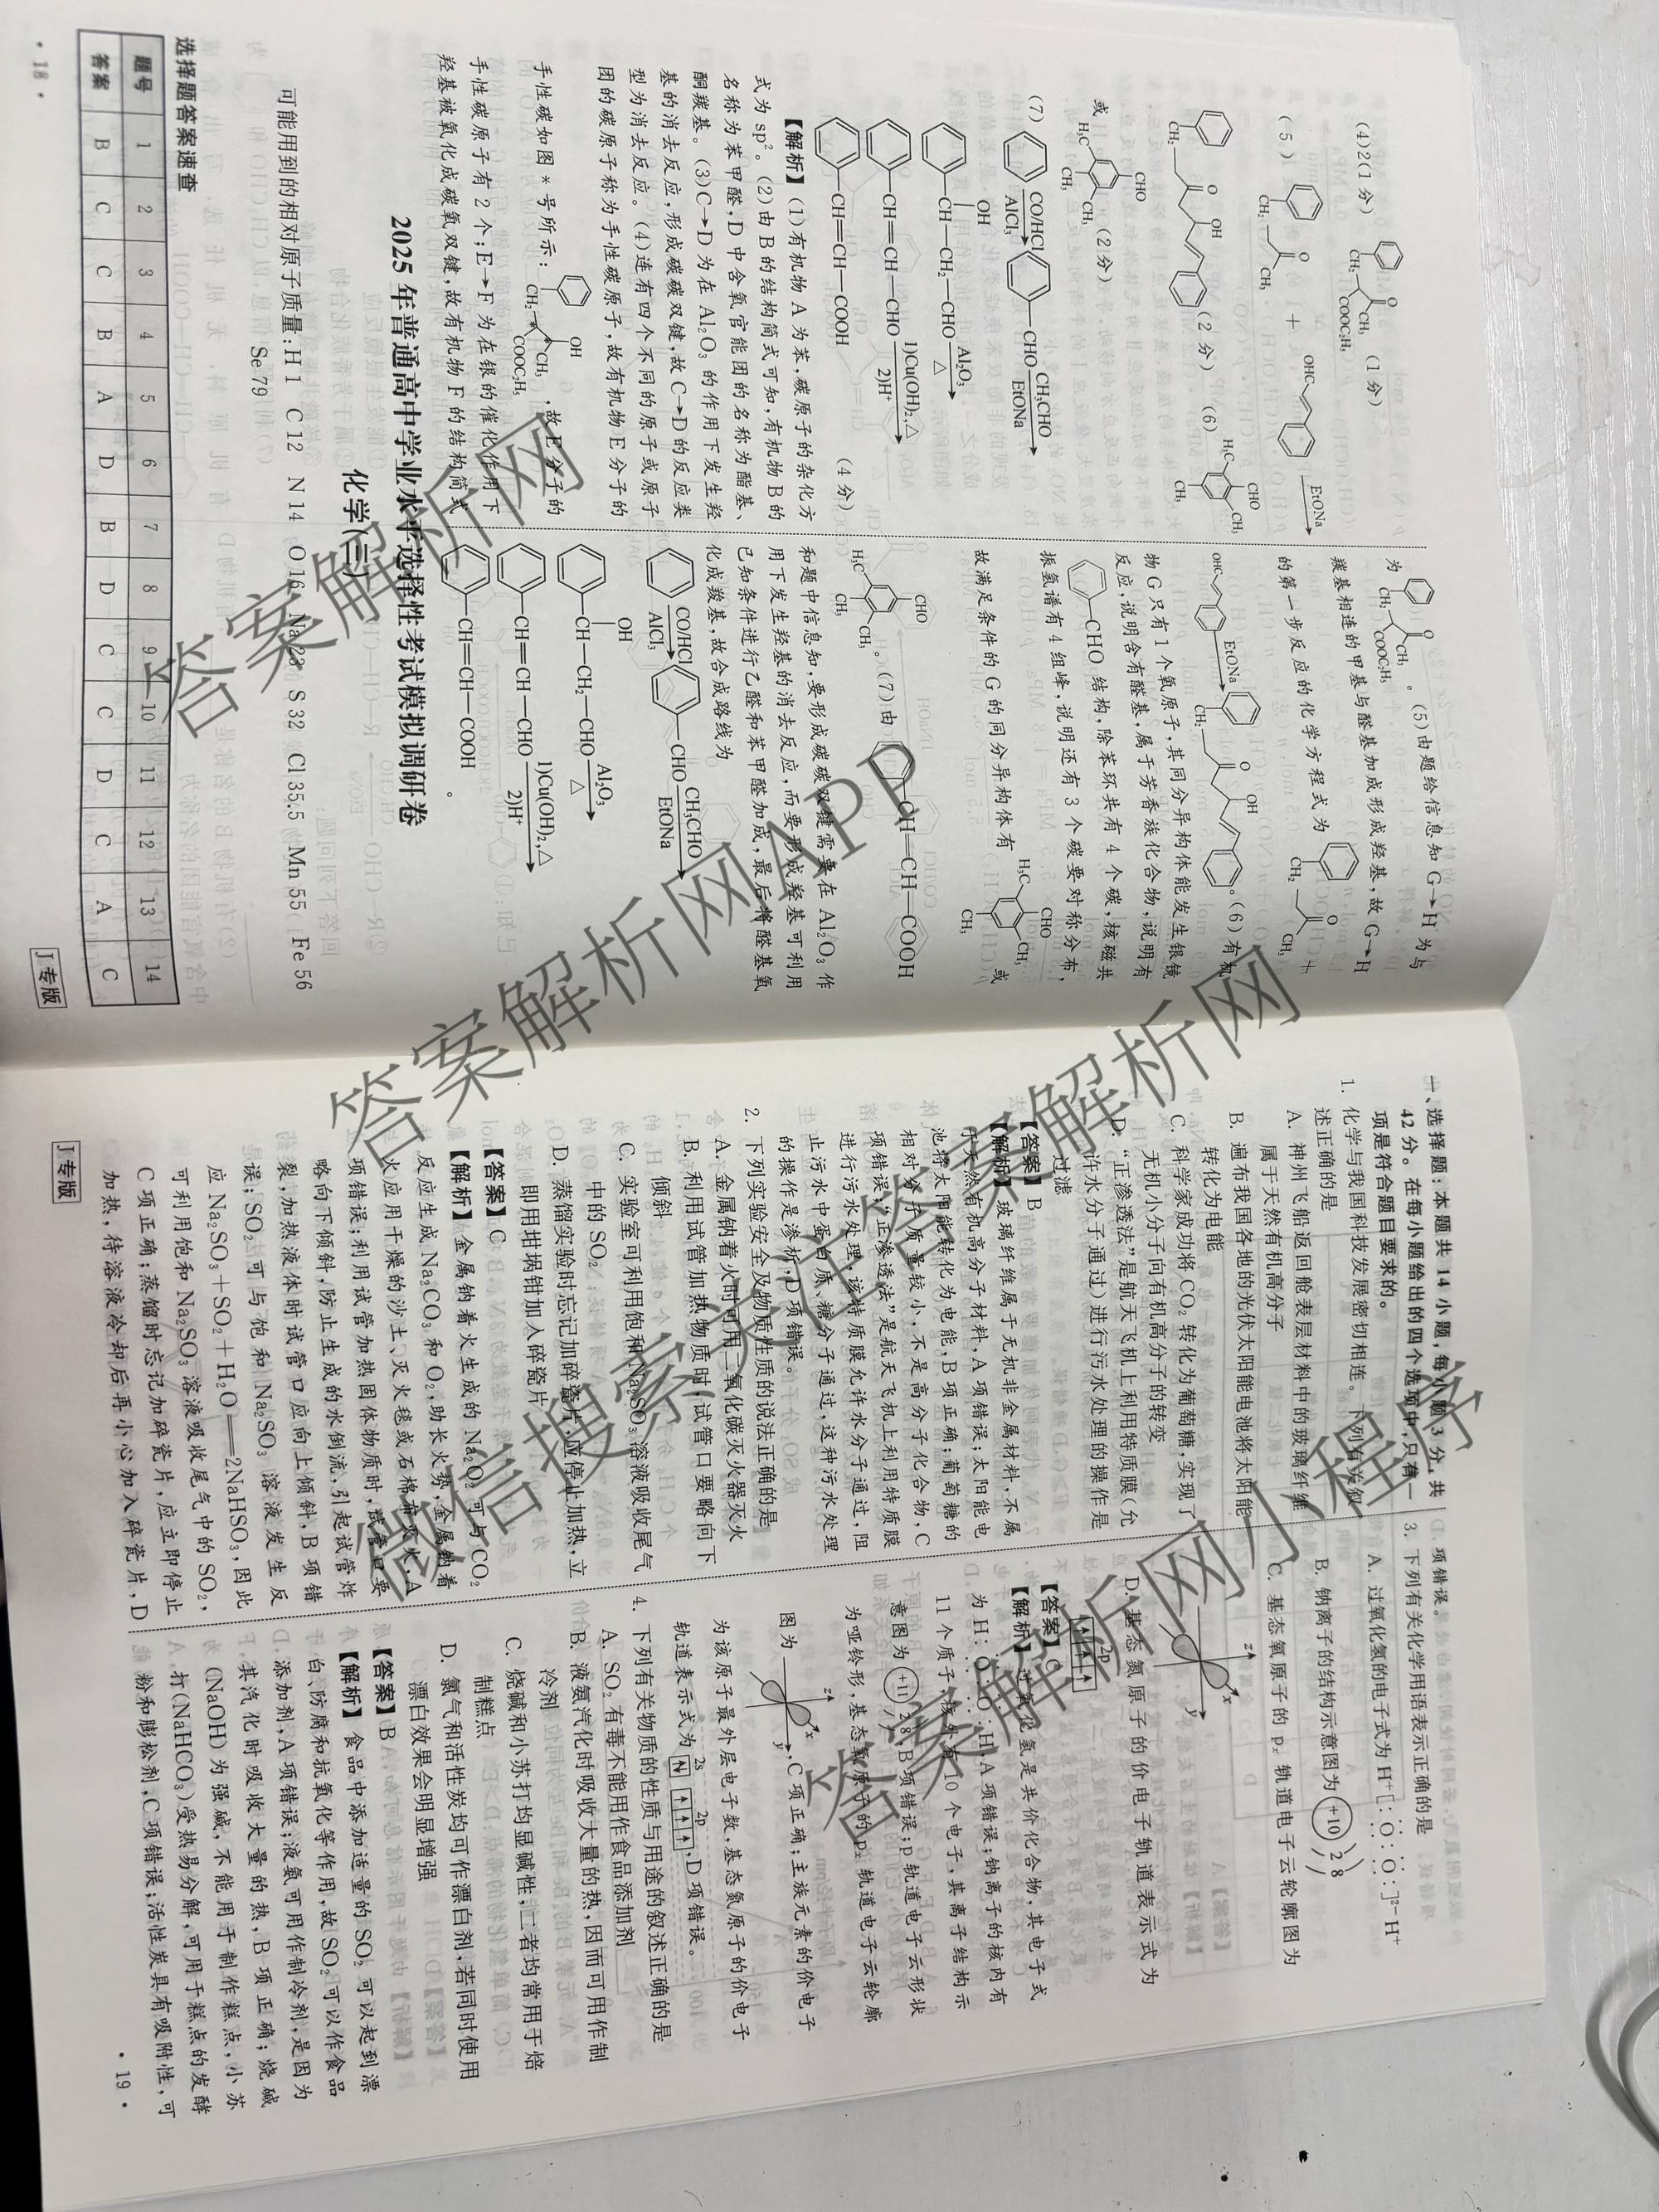 (4)2(1 分) CH₂ O CH₃ COOC₂H₅ (1 分)
(5) CH₂ O CH₃ + OHC EtONa
CH₂ O OH (2 分) (6) H₃C CHO CH₃ CH₃
或 H₃C CHO CH₃ CH₃ (2 分)
(7) CO/HCl AlCl₃ CHO CH₃CHO EtONa
OH
CH—CH₂—CHO Al₂O₃ △
CH=CH—CHO 1)Cu(OH)₂,△ 2)H⁺
CH=CH—COOH (4 分)
【解析】(1)有机物 A 为苯,碳原子的杂化方
式为 sp²。(2)由 B 的结构简式可知,有机物 B 的
名称为苯甲醛,D 中含氧官能团的名称为酯基、
酮羰基。(3)C→D 为在 Al₂O₃ 的作用下发生羟
基的消去反应,形成碳碳双键,故 C→D 的反应类
型为消去反应。(4)连有四个不同的原子或原子
团的碳原子称为手性碳原子,故有机物 E 分子的
手性碳如图 * 号所示: CH₂ OH CH₃ COOC₂H₅ ,故 E 分子的
手性碳原子有 2 个;E→F 为在银的催化作用下
羟基被氧化成碳氧双键,故有机物 F 的结构简式
为 CH₂ O CH₃ COOC₂H₅ 。(5)由题给信息知 G→H 为与
羰基相连的甲基与醛基加成形成羟基,故 G→H
的第一步反应的化学方程式为 CH₂ O CH₃ +
OHC EtONa CH₂ O OH 。(6)有机
物 G 只有 1 个氧原子,其同分异构体能发生银镜
反应,说明含有醛基,属于芳香族化合物,说明有
CHO 结构,除苯环共有 4 个碳,核磁共
振氢谱有 4 组峰,说明还有 3 个碳要对称分布,
故满足条件的 G 的同分异构体有 H₃C CHO CH₃ CH₃ 或
H₃C CHO CH₃ CH₃ 。(7)由 CH=CH—COOH
和题中信息知,要形成碳碳双键需要在 Al₂O₃ 作
用下发生羟基的消去反应,而要形成羟基可利用
已知条件进行乙醛和苯甲醛加成,最后将醛基氧
化成羧基,故合成路线为
CO/HCl AlCl₃ CHO CH₃CHO EtONa
OH
CH—CH₂—CHO Al₂O₃ △
CH=CH—CHO 1)Cu(OH)₂,△ 2)H⁺
CH=CH—COOH 。
2025 年普通高中学业水平选择性考试模拟调研卷
化学(三)
可能用到的相对原子质量:H 1 C 12 N 14 O 16 Na 23 S 32 Cl 35.5 Mn 55 Fe 56
Se 79
选择题答案速查
题号 1 2 3 4 5 6 7 8 9 10 11 12 13 14
答案 B C C B A D B D C C D C A C
• 18 •
J 专版
一、选择题:本题共 14 小题,每小题 3 分,共
42 分。在每小题给出的四个选项中,只有一
项是符合题目要求的。
1. 化学与我国科技发展密切相连。下列有关叙
述正确的是
A. 神州飞船返回舱表层材料中的玻璃纤维
属于天然有机高分子
B. 遍布我国各地的光伏太阳能电池将太阳能
转化为电能
C. 科学家成功将 CO₂ 转化为葡萄糖,实现了
无机小分子向有机高分子的转变
D. “正渗透法”是航天飞机上利用特质膜(允
许水分子通过)进行污水处理的操作是
过滤
【答案】B
【解析】玻璃纤维属于无机非金属材料,不属
于天然有机高分子材料,A 项错误;太阳能电
池将太阳能转化为电能,B 项正确;葡萄糖的
相对分子质量较小,不是高分子化合物,C
项错误;“正渗透法”是航天飞机上利用特质膜
进行污水处理,该特质膜允许水分子通过,阻
止污水中蛋白质、糖分子通过,这种污水处理
的操作是渗析,D 项错误。
2. 下列实验安全及物质性质的说法正确的是
A. 金属钠着火时可用二氧化碳灭火器灭火
B. 利用试管加热物质时,试管口要略向下
倾斜
C. 实验室可利用饱和 Na₂SO₃ 溶液吸收尾气
中的 SO₂
D. 蒸馏实验时忘记加碎瓷片,应停止加热,立
即用坩埚钳加入碎瓷片
【答案】C
【解析】金属钠着火生成的 Na₂O₂ 可与 CO₂
反应生成 Na₂CO₃ 和 O₂,助长火势,金属钠着
火应用干燥的沙土、灭火毯或石棉布灭火,A
项错误;利用试管加热固体物质时,试管口要
略向下倾斜,防止生成的水倒流,引起试管炸
裂,加热液体时试管口应向上倾斜,B 项错
误;SO₂ 可与饱和 Na₂SO₃ 溶液发生反
应 Na₂SO₃+SO₂+H₂O══2NaHSO₃,因此
可利用饱和 Na₂SO₃ 溶液吸收尾气中的 SO₂,
C 项正确;蒸馏时忘记加碎瓷片,应立即停止
加热,待溶液冷却后再小心加入碎瓷片,D
项错误。
3. 下列有关化学用语表示正确的是
A. 过氧化氢的电子式为 H⁺[:O:O:]²⁻H⁺
B. 钠离子的结构示意图为 +10 2 8
C. 基态氧原子的 p_z 轨道电子云轮廓图为
z x y
D. 基态氮原子的价电子轨道表示式为
2p
【答案】C
【解析】过氧化氢是共价化合物,其电子式
为 H:O:O:H,A 项错误;钠离子的核内有
11 个质子,核外有 10 个电子,其离子结构示
意图为 +11 2 8,B 项错误;p 轨道电子云形状
为哑铃形,基态氧原子的 p_z 轨道电子云轮廓
图为 z x y,C 项正确;主族元素的价电子
为该原子最外层电子数,基态氮原子的价电子
轨道表示式为 2s 2p,D 项错误。
4. 下列有关物质的性质与用途的叙述正确的是
A. SO₂ 有毒不能用作食品添加剂
B. 液氨汽化时吸收大量的热,因而可用作制
冷剂
C. 烧碱和小苏打均显碱性,二者均常用于焙
制糕点
D. 氯气和活性炭均可作漂白剂,若同时使用
漂白效果会明显增强
【答案】B
【解析】食品中添加适量的 SO₂ 可以起到漂
白、防腐和抗氧化等作用,故 SO₂ 可以作食品
添加剂,A 项错误;液氨可用作制冷剂,是因为
其汽化时吸收大量的热,B 项正确;烧碱
(NaOH)为强碱,不能用于制作糕点,小苏
打(NaHCO₃)受热易分解,可用于糕点的发酵
粉和膨松剂,C 项错误;活性炭具有吸附性,可
J 专版
• 19 •
答案解析网
答案解析网APP
答案解析网
微信搜索关注答案解析网小程序
答案解析网